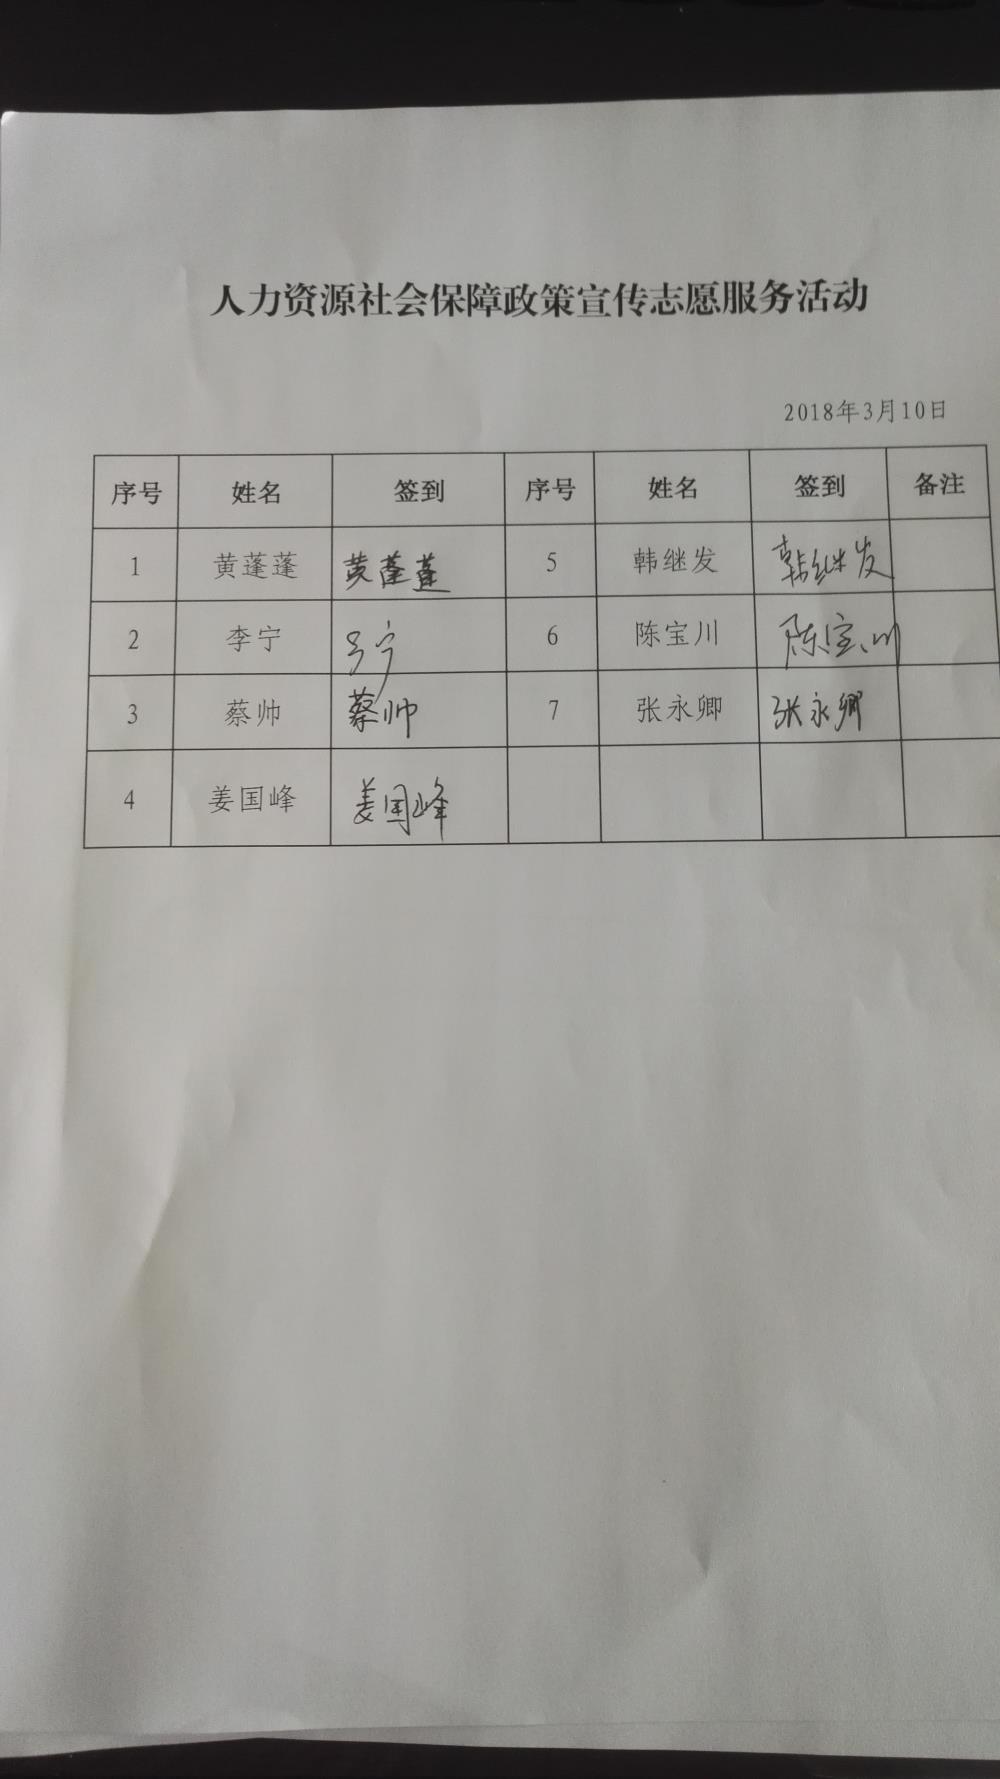 人力资源社会保障政策宣传志愿服务活动
2018年3月10日
序号 姓名 签到 序号 姓名 签到 备注
1 黄蓬蓬 黄蓬蓬 5 韩继发 韩继发
2 李宁 李宁 6 陈宝川 陈宝川
3 蔡帅 蔡帅 7 张永卿 张永卿
4 姜国峰 姜国峰